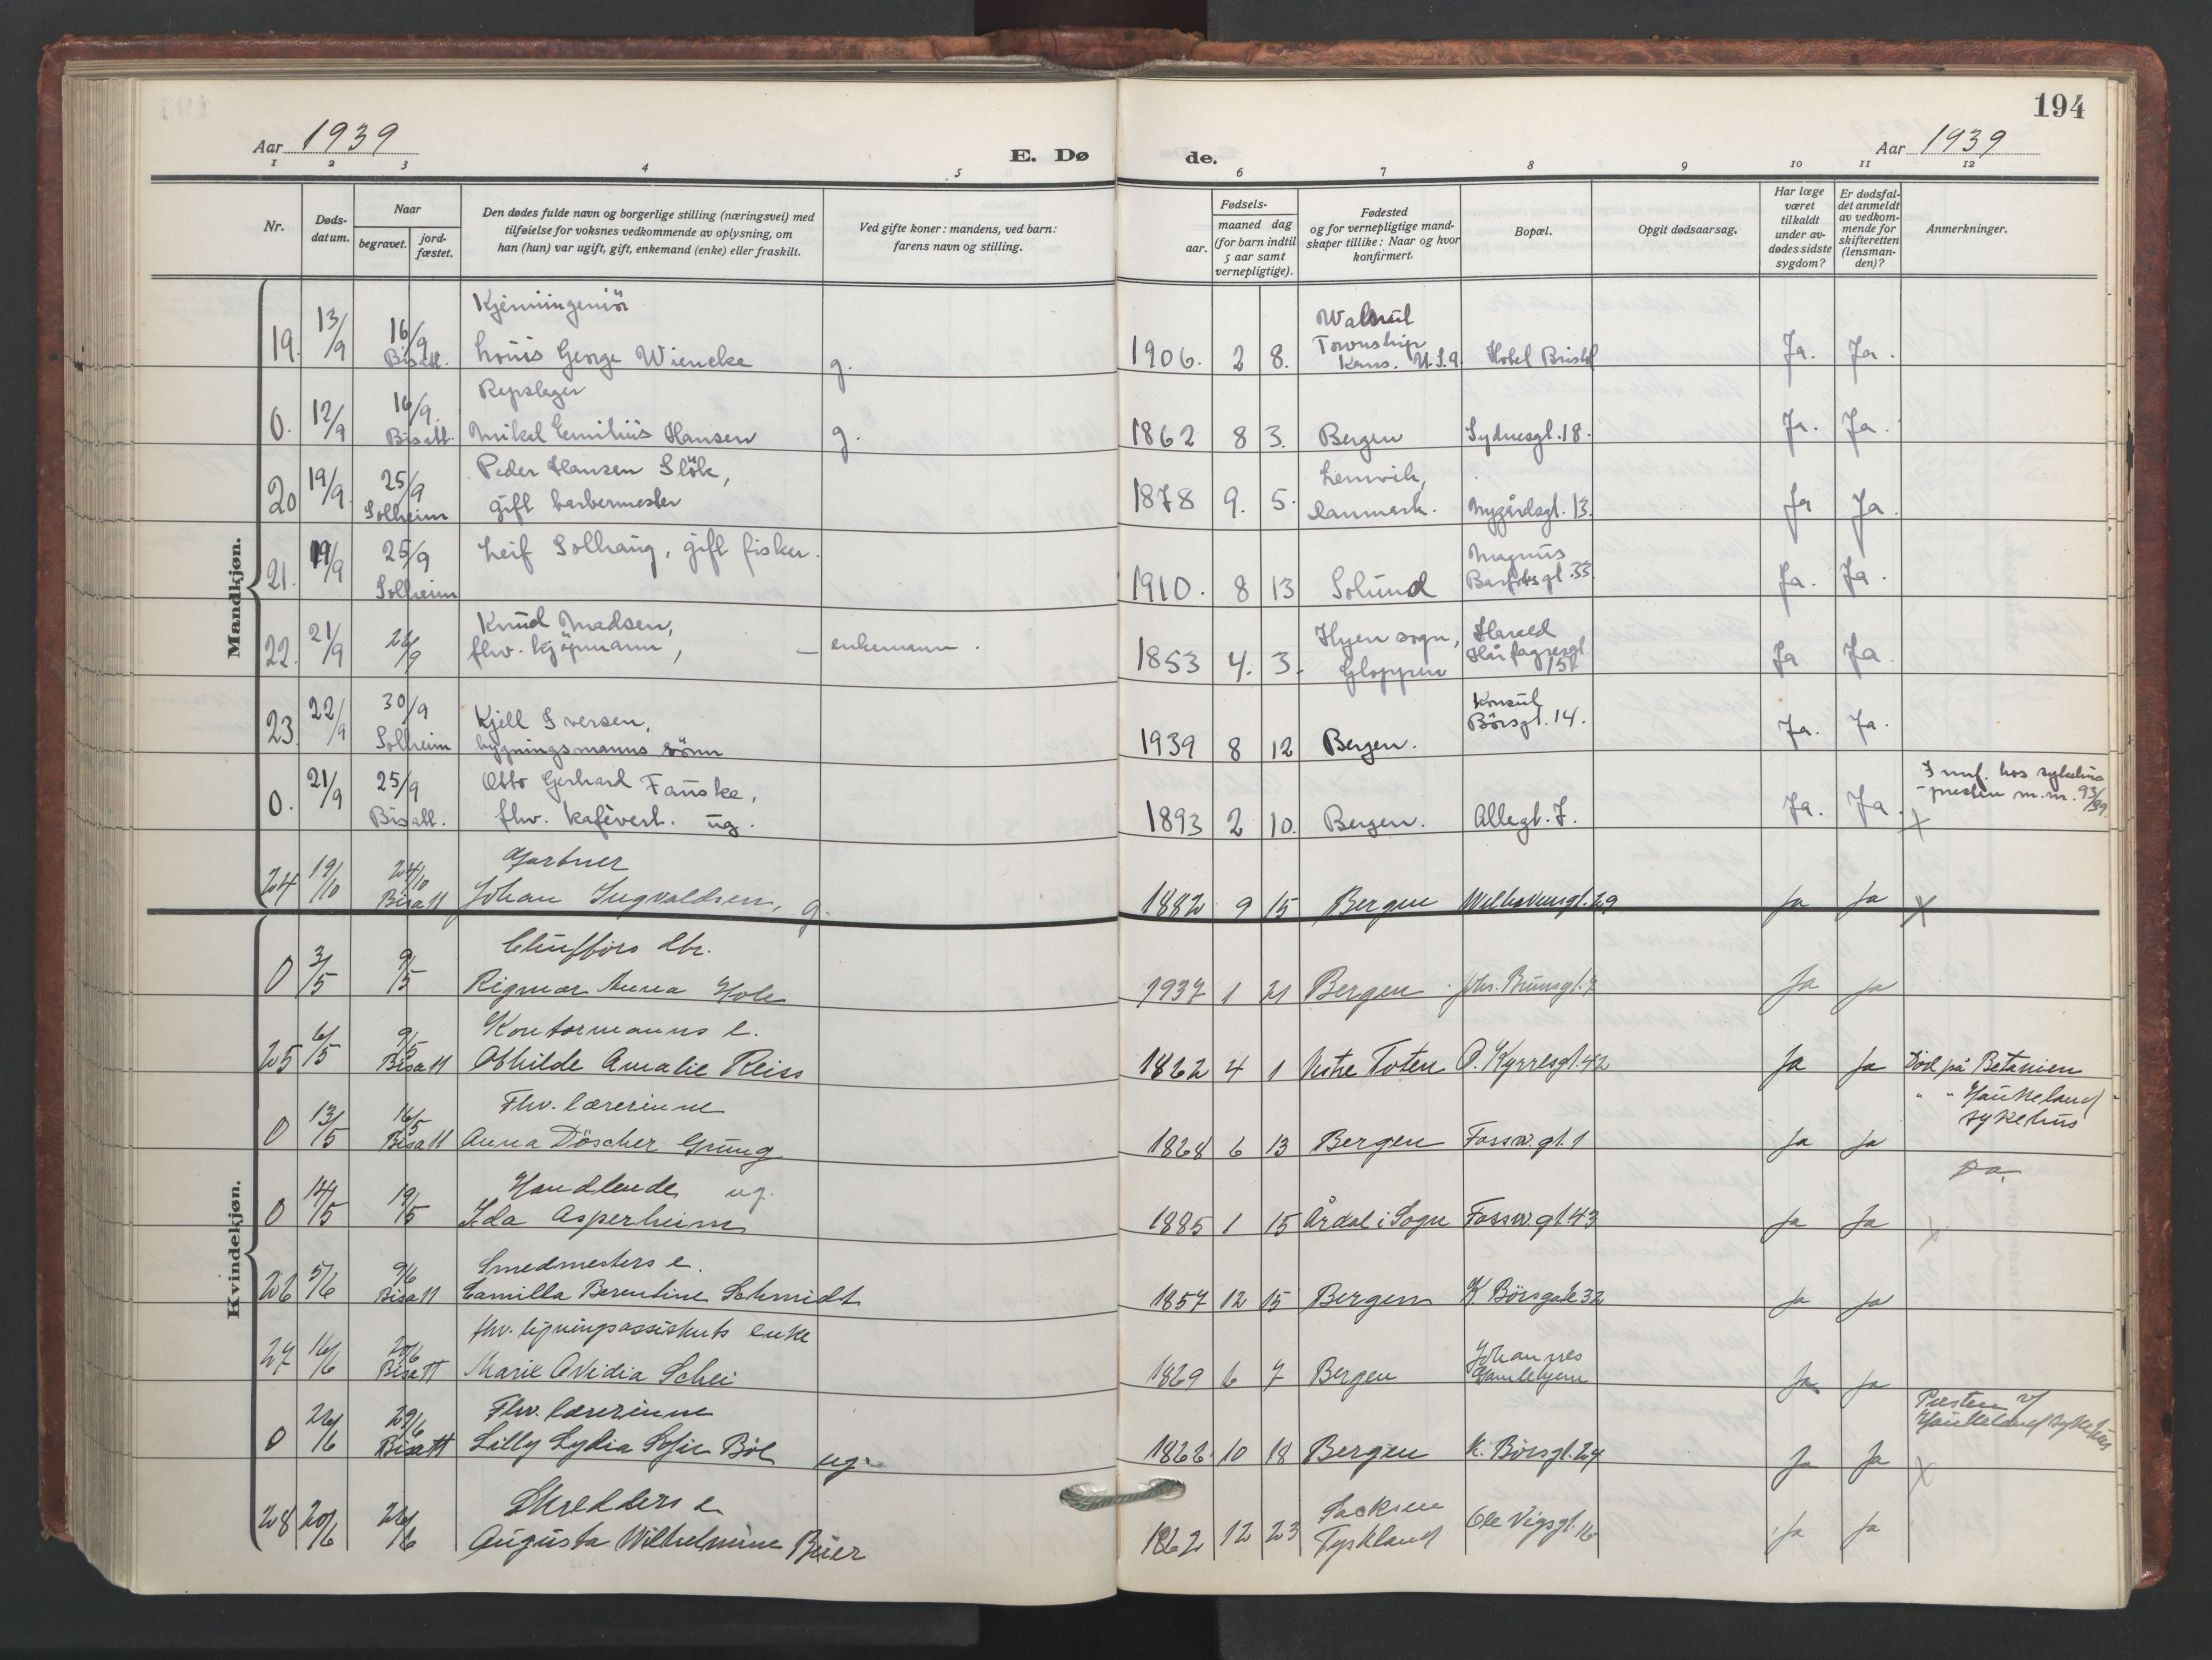 194
Aar 1939
E. Dø
de.
Aar 1939
1 2 3 4 5 6 7 8 9 10 11 12
Nr.
Døds-
datum.
Naar
begravet.
jord-
fæstet.
Den dødes fulde navn og borgerlige stilling (næringsvei) med
tilføielse for voksnes vedkommende av oplysning, om
han (hun) var ugift, gift, enkemand (enke) eller fraskilt.
Ved gifte koner: mandens, ved barn:
farens navn og stilling.
Fødsels-
aar.
maaned dag
(for barn indtil
5 aar samt
vernepligtige).
Fødested
og for vernepligtige mand-
skaper tillike: Naar og hvor
konfirmert.
Bopæl.
Opgit dødsaarsag.
Har læge
været
tilkaldt
under av-
dødes sidste
sygdom?
Er dødsfal-
det anmeldt
av vedkom-
mende for
skifteretten
(lensman-
den)?
Anmerkninger.
Mandkjøn.
Kjemiingeniör
19. 13/9 16/9 Bisatt. Louis George Wiencke g. 1906. 2 8. Walnut Township Kans. U.S.A. Hotel Bristol Ja. Ja.
Repslager
0. 12/9 16/9. Bisatt. Mikal Emilius Hansen g. 1862 8 3. Bergen Sydnesgt. 18. Ja. Ja.
Peder Hansen Slök,
20 19/9. 25/9 Solheim gift barbermester 1878 9. 5. Lemvik, Danmark. Nygårdsgt. 13. Ja Ja.
21. 19/9 25/9 Solheim Leif Solhaug, gift fisker. 1910. 8 13 Solund Magnus Barfotsgt. 33. Ja. Ja.
Knud Madsen,
22. 21/9 26/9 fhv. kjöpmann, – enkemann. 1853 4. 3. Hyen sogn, Gloppen Harald Hårfagresgt. 15 Ja Ja.
23. 22/9 30/9 Solheim Kjell Iversen,
bygningsmanns sönn 1939 8 12 Bergen. Konsul Börsgt. 14. Ja. Ja.
Otto Gerhard Fauske,
0. 21/9 25/9 Bisatt. fhv. kafévert. ug. 1893 2 10. Bergen. Allegt. 7. Ja. Ja. Innf. hos sykehus-
presten m.nr. 93/39. X
Gartner
24 19/10 24/10 Bisatt Johan Ingvaldsen, g. 1882 9 15 Bergen Welhavensgt. 29 Ja Ja X
Kvindekjøn.
Chufförs dtr.
0 3/5 9/5 Rigmor Anna Hole 1937 1 21 Bergen Joh. Brunsgt. 7 Ja Ja
Kontormanns e.
25 6/5 9/5 Bisatt Othilde Amalie Reiss 1862 4 1 Vestre Toten O. Kyrresgt. 42 Ja Ja Död på Betanien
Fhv. lærerinne
0 13/5 16/5 Bisatt Anna Döscher Grung 1868 6 13 Bergen Fossw. gt. 1 Ja Ja " " Haukeland sykehus
Handlende ug.
0 14/5 19/5 Ida Asperheim 1885 1 15 Årdal i Sogn Fossw. gt 43 Ja Ja Do. X
Smedmesters e.
26 5/6 9/6 Bisatt Camilla Berentine Schmidt 1857 12 15 Bergen K. Börsgate 32 Ja Ja
fhv. ligningsassistents enke
27 16/6 20/6 Bisatt Marie Ovidia Schei 1869 6 7 Bergen Johannes Gamlehjem Ja Ja
Fhv. lærerinne
0 26/6 29/6 Bisatt Lilly Lydia Sofie Böe ug. 1866. 10 18 Bergen K. Börsgt. 24 Ja Ja Presten v/ Haukeland sykehus X
Skredders e
28 20/6 26/6 Augusta Wilhelmine Beier 1862 12 23 Sacksen Tyskland Ole Vigsgt. 16 Ja Ja